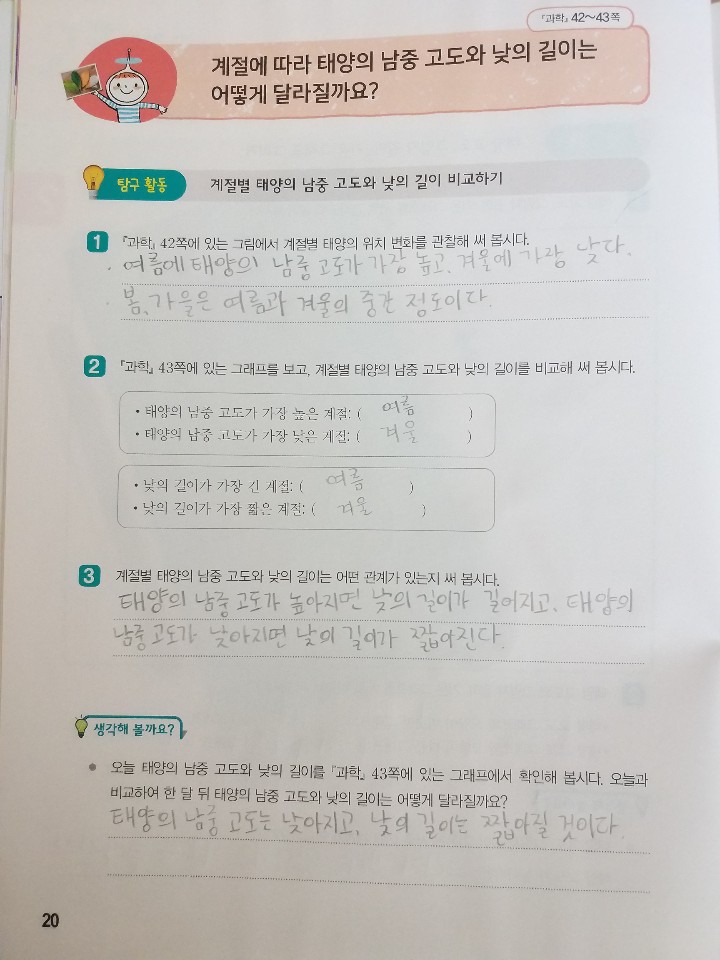 『과학』 42~43쪽
계절에 따라 태양의 남중 고도와 낮의 길이는
어떻게 달라질까요?
탐구 활동 계절별 태양의 남중 고도와 낮의 길이 비교하기
1 『과학』 42쪽에 있는 그림에서 계절별 태양의 위치 변화를 관찰해 써 봅시다.
· 여름에 태양의 남중고도가 가장 높고, 겨울에 가장 낮다.
· 봄, 가을은 여름과 겨울의 중간 정도이다.
2 『과학』 43쪽에 있는 그래프를 보고, 계절별 태양의 남중 고도와 낮의 길이를 비교해 써 봅시다.
• 태양의 남중 고도가 가장 높은 계절: ( 여름 )
• 태양의 남중 고도가 가장 낮은 계절: ( 겨울 )
• 낮의 길이가 가장 긴 계절: ( 여름 )
• 낮의 길이가 가장 짧은 계절: ( 겨울 )
3 계절별 태양의 남중 고도와 낮의 길이는 어떤 관계가 있는지 써 봅시다.
태양의 남중고도가 높아지면 낮의 길이가 길어지고, 태양의
남중고도가 낮아지면 낮의 길이가 짧아진다.
생각해 볼까요?
● 오늘 태양의 남중 고도와 낮의 길이를 『과학』 43쪽에 있는 그래프에서 확인해 봅시다. 오늘과
비교하여 한 달 뒤 태양의 남중 고도와 낮의 길이는 어떻게 달라질까요?
태양의 남중 고도는 낮아지고, 낮의 길이는 짧아질 것이다.
20